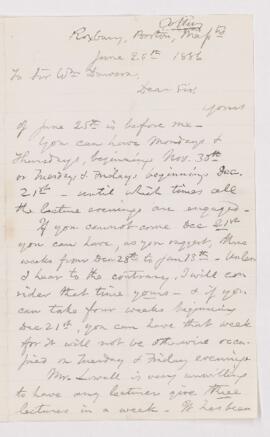 Roxbury, Boston, Mass
June 26th 1886
To Sir Wm Dawson
Dear Sir
Yours
of June 25th is before me -
You can have Mondays &
Thursdays, beginning Nov. 30th
or Tuesdays & Fridays beginning Dec.
21st - until which times all
the lecture evenings are engaged -
If you cannot come Dec 21st
you can have, as you suggest, three
weeks from Dec 28th to Jan 18th - Unless
I hear to the contrary, I will con
sider that time yours - & if you
can take four weeks beginning
Dec 21st, you can have that week
for it will not be otherwise occu-
pied on Tuesday & Friday evenings
Mr. Lowell is very unwilling
to have any lecturer give three
lectures in a week - It has been